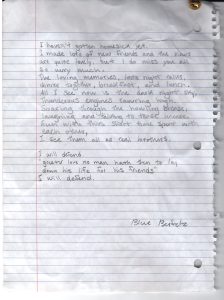 I haven't gotten homesick yet.
I made lots of new friends and the views
are quite lovely, but I do miss you all
so very much.
The loving memories, late night talks,
dinner together, breakfast, and lunch.
All I see now is the dark night sky,
Thunderous engines roaring high.
Soaring through the howling breeze,
laughing and talking to those
Even with this short time spent with
each other,
I see them all as real brothers.
I will defend
"greater love no man hath then to lay
down his life for his friends"
I will defend.
Blue